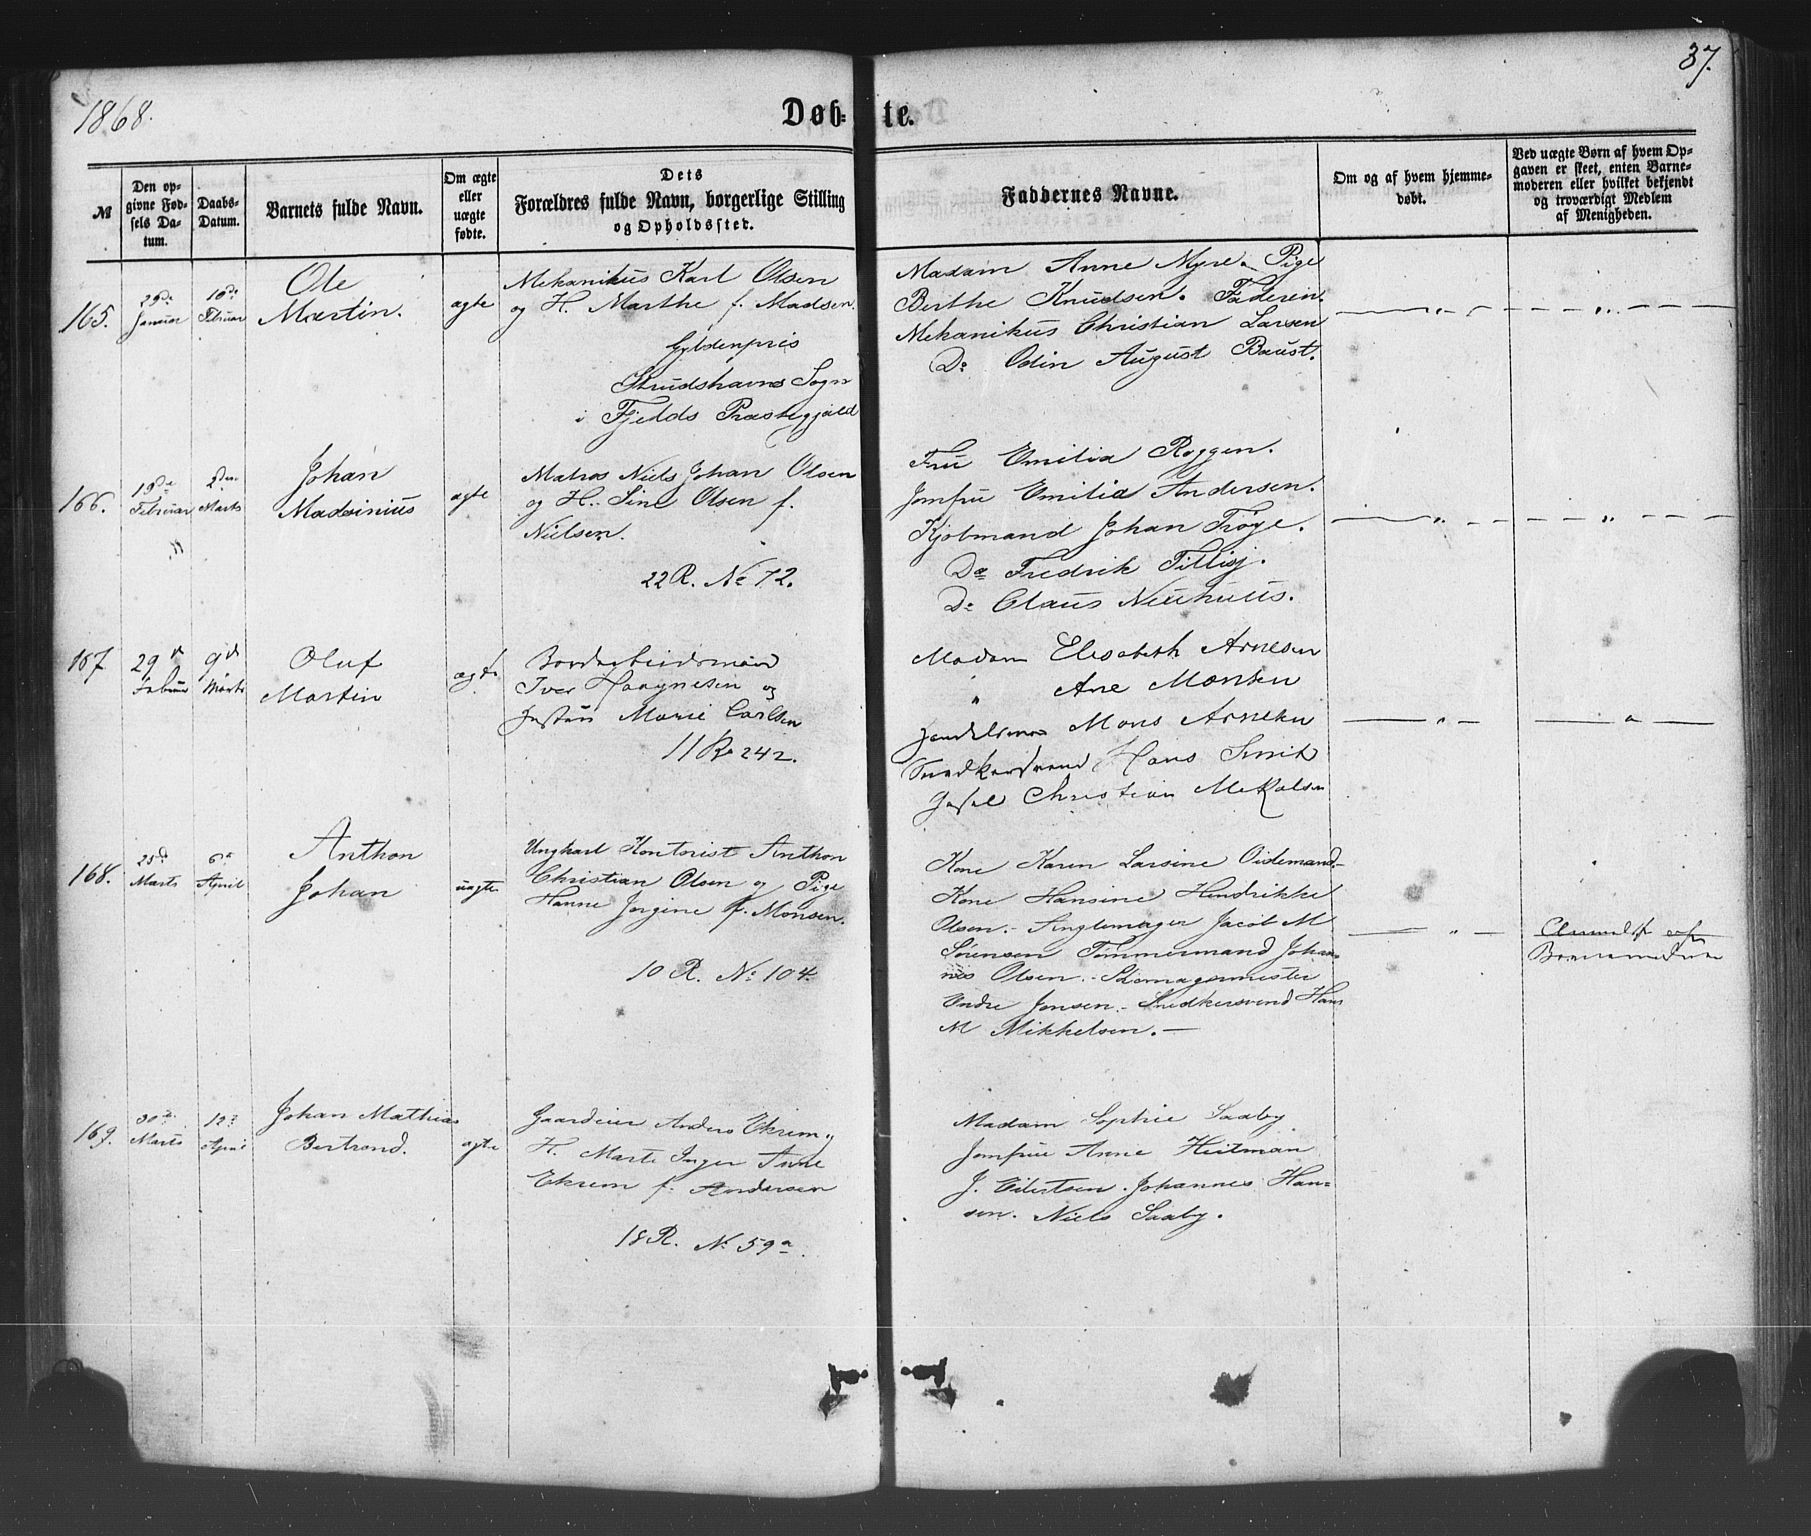 37.
1868.
Døb- te.
№
Den opgivne Fødsels Datum.
Daabs-Datum.
Barnets fulde Navn.
Om ægte eller uægte fødte.
Dets Forældres fulde Navn, borgerlige Stilling og Opholdssted.
Faddernes Navne.
Om og af hvem hjemmedøbt.
Ved uægte Børn af hvem Opgaven er skeet, enten Barnemoderen eller hvilket bekjendt og troværdigt Medlem af Menigheden.
165.
29de Januar
16de Februar
Ole
Martin.
ægte
Mekanikus Karl Olsen
og H. Marthe f. Madsen.
Gyldenpris
Strudshavns Sogn
i Fjelds Præstegjæld
Madam Anne Myre. Pige
Berthe Knudsen. Faderen.
Mekanikus Christian Larsen
Do Odin August Baust.
166.
19de Februar
2den Marts
Johan
Madsinius
ægte
Matros Niels Johan Olsen
og H. Sine Olsen f.
Nielsen.
22 R. No 72.
Fru Emilia Roggen.
Jomfru Emilia Andersen.
Kjøbmand Johan Trøye.
Do Fredrik Tillisj.
Do Claus Neuhuus.
167
29d Februar
9d Marts
Oluf
Martin
ægte
Iver Haagnesen og
Marie Carlsen
11 Ro 242.
Madam Elisabeth Arnesen
" Ane Monsen
Handelsmand Mons Arnesen
Hans Smit
Christian Mekalsen
168.
25d Marts
6te April
Anthon
Johan
uægte
Ungkarl Kontorist Anthon
Christian Olsen og Pige
Hanne Jorgine f. Monsen.
10 R. No 104.
Kone Karen Larsine Oidemand
Kone Hansine Hendrikke
Olsen. Singlemager Jacob M
Sørensen Tømmermand Johan-
nes Olsen. Skomagermester
Endre Jonsen. Snedkersvend Hans
M Mikkelsen.
Anmeldt af
Barnemoderen
169.
30te Marts
13d April
Johan Mathias
Bertrond.
ægte
Gaardeier Anders Ekrem og
H. Marte Inger Anne
Ekrem f. Andersen
18 R. No 59a.
Madam Sophie Saaby
Jomfru Anne Heitman
J. Eilertsen. Johannes Han-
sen. Niels Saaby.